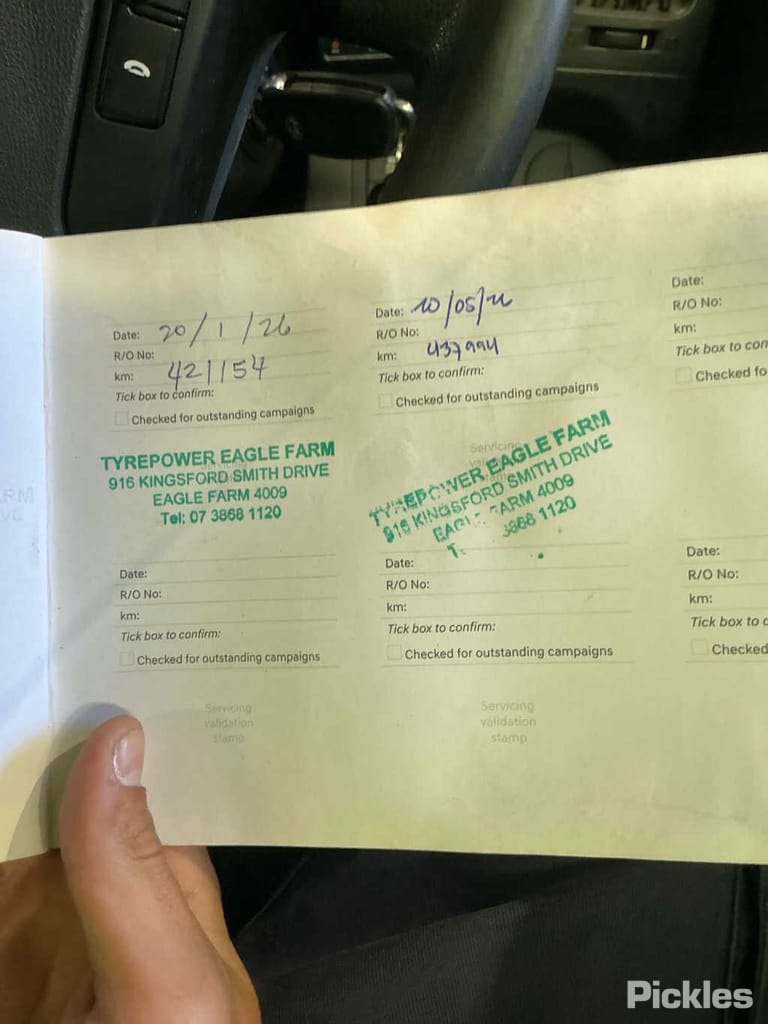 Date: 20/1/26
R/O No:
km: 421154
Tick box to confirm:
Checked for outstanding campaigns
TYREPOWER EAGLE FARM
916 KINGSFORD SMITH DRIVE
EAGLE FARM 4009
Tel: 07 3868 1120
Date: 10/05/
R/O No:
km: 437994
Tick box to confirm:
Checked for outstanding campaigns
Servicing
TYREPOWER EAGLE FARM
916 KINGSFORD SMITH DRIVE
FARM 4009
3868 1120
Date:
R/O No:
km:
Tick box to con
Checked fo
Date:
R/O No:
km:
Tick box to confirm:
Checked for outstanding campaigns
Servicing
validation
stamp
Date:
R/O No:
km:
Tick box to confirm:
Checked for outstanding campaigns
Servicing
validation
stamp
Date:
R/O No:
km:
Tick box to c
Checked
Pickles